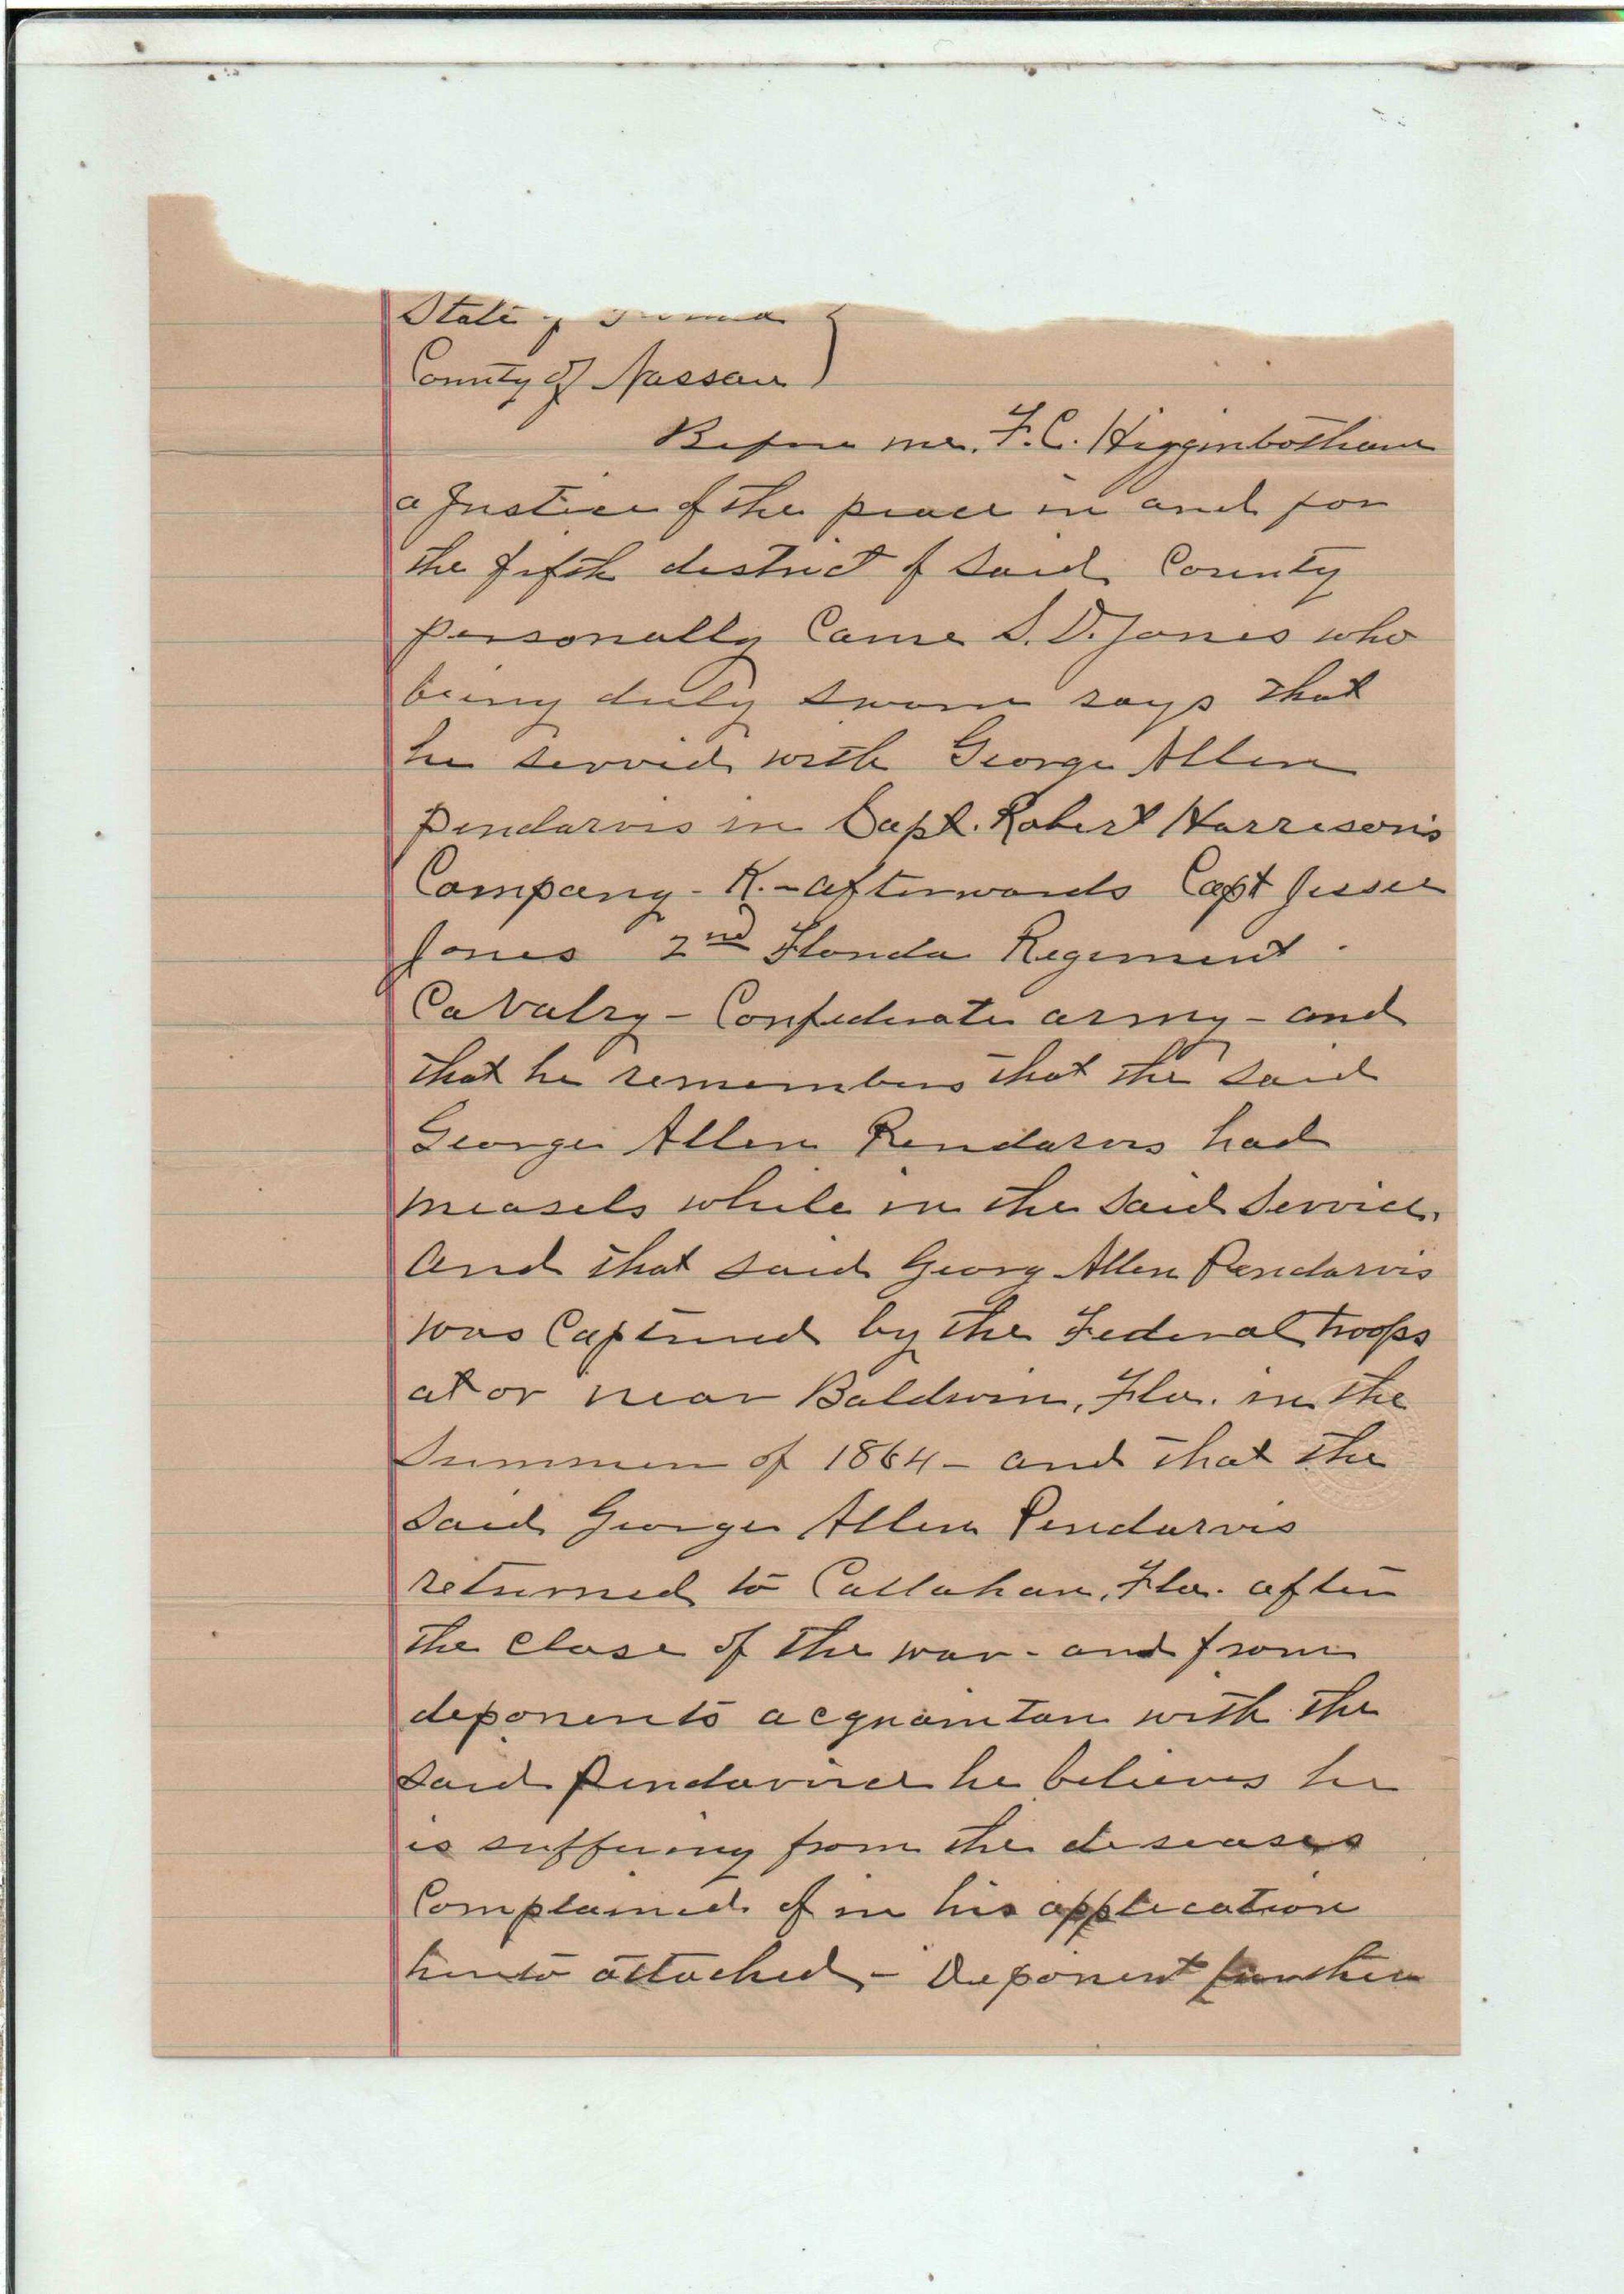 State of Florida
County of Nassau
Before me, F.C. Higginbotham
a Justice of the peace in and for
the fifth district of said County
personally Came S.D. Jones who
being duly sworn says that
he served with George Allen
Pendarvis in Capt. Robert Harrison's
Company - K. - afterwards Capt Jesse
Jones 2nd Florida Regiment
Cavalry - Confederate army - and
that he remembers that the said
George Allen Pendarvis had
measels while in the said service.
And that said Georg Allen Pendarvis
was Captured by the Federal troops
at or near Baldwin, Fla. in the
Summer of 1864 - and that the
said George Allen Pendarvis
returned to Callahan, Fla. after
the close of the war - and from
deponents acquaintan with the
said Pendarvis he believes he
is suffering from the diseases
Complained of in his application
hereto attached - Deponent further